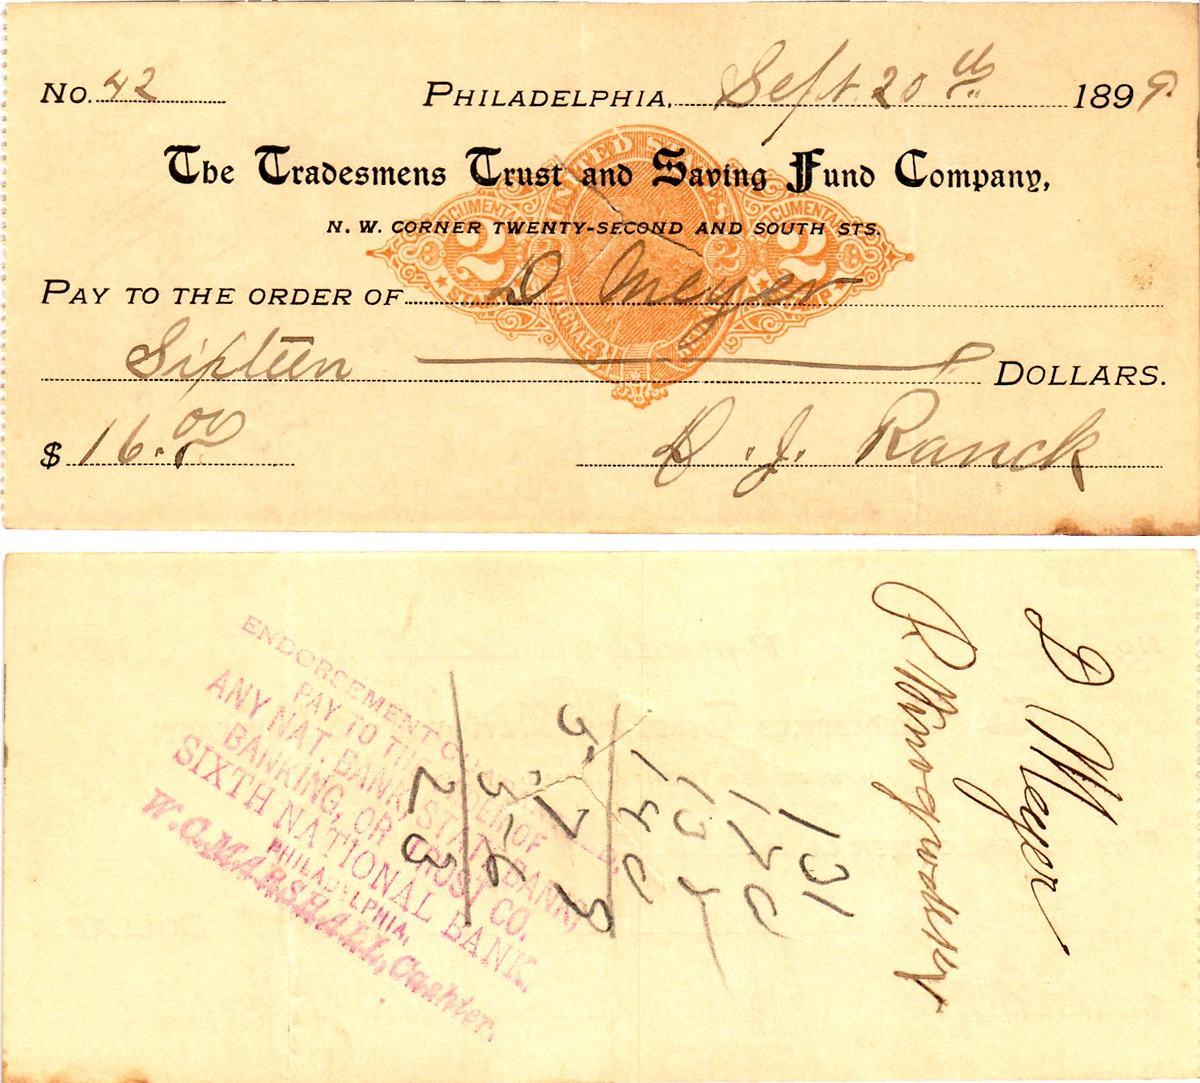 No. 42 Philadelphia, Sept. 20th 1899.
The Tradesmens Trust and Saving Fund Company,
N. W. CORNER TWENTY-SECOND AND SOUTH STS.
UNITED STATES
DOCUMENTARY
2 2 2 2
STAMP
INTERNAL REVENUE
PAY TO THE ORDER OF D Meyer
Sixteen DOLLARS.
$ 16.00 D. J. Ranck
D Meyer
ENDORSEMENT GUARANTEED
PAY TO THE ORDER OF
ANY NAT. BANK, STATE BANK,
BANKING, OR TRUST CO.
SIXTH NATIONAL BANK.
PHILADELPHIA,
W. C. MARSHALL, Cashier.
131
170
140
23